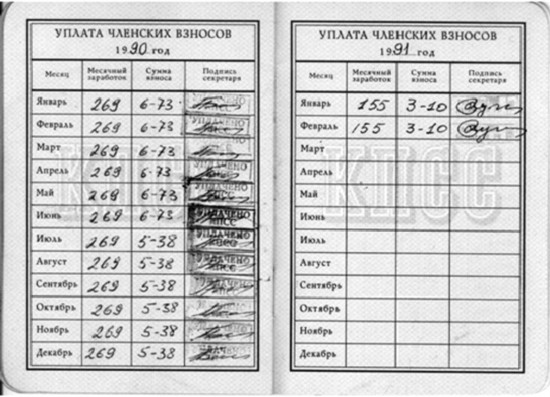 УПЛАТА ЧЛЕНСКИХ ВЗНОСОВ
1990 год
Месяц Месячный заработок Сумма взноса Подпись секретаря
Январь 269 6-73
Февраль 269 6-73
Март 269 6-73
Апрель 269 6-73
Май 269 6-73
Июнь 269 6-73 УПЛАЧЕНО КПСС
Июль 269 5-38 УПЛАЧЕНО КПСС
Август 269 5-38 УПЛАЧЕНО КПСС
Сентябрь 269 5-38
Октябрь 269 5-38
Ноябрь 269 5-38
Декабрь 269 5-38
КПСС
УПЛАТА ЧЛЕНСКИХ ВЗНОСОВ
1991 год
Месяц Месячный заработок Сумма взноса Подпись секретаря
Январь 155 3-10
Февраль 155 3-10
Март
Апрель
Май
Июнь
Июль
Август
Сентябрь
Октябрь
Ноябрь
Декабрь
КПСС